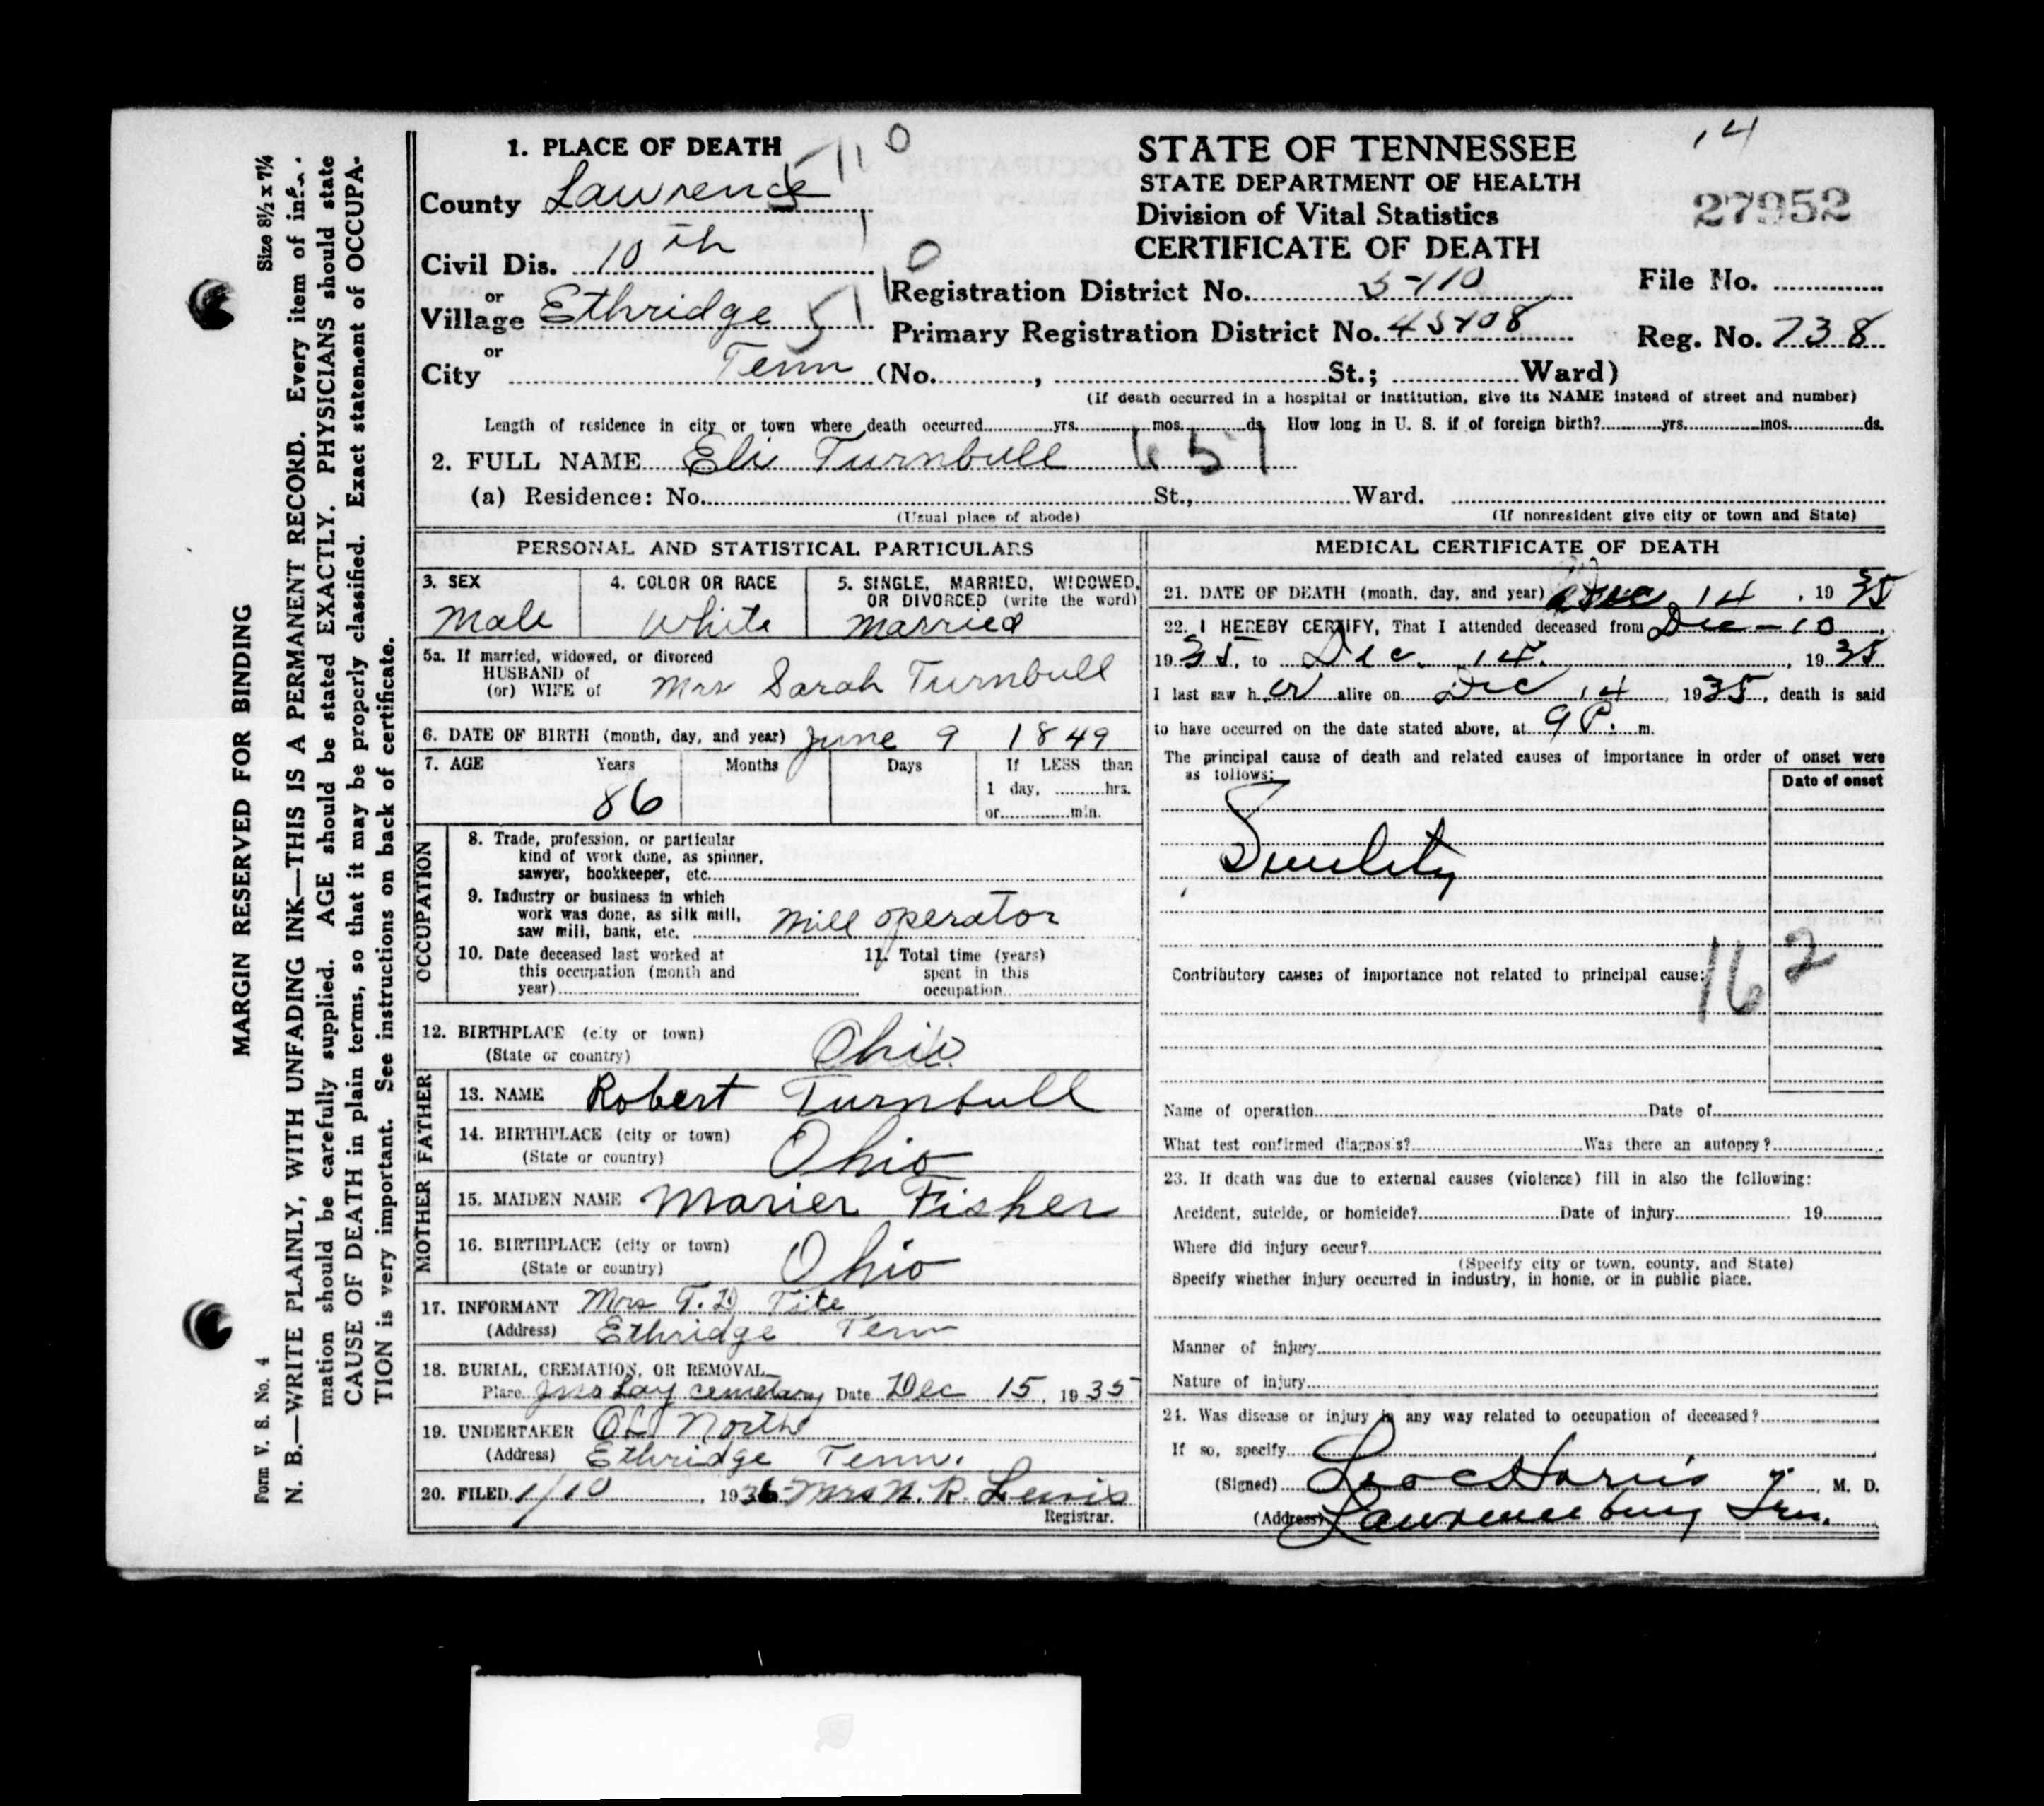 MARGIN RESERVED FOR BINDING
Size 8½ x 7¼
N. B.—WRITE PLAINLY, WITH UNFADING INK—THIS IS A PERMANENT RECORD. Every item of infor-
mation should be carefully supplied. AGE should be stated EXACTLY. PHYSICIANS should state
CAUSE OF DEATH in plain terms, so that it may be properly classified. Exact statement of OCCUPA-
TION is very important. See instructions on back of certificate.
Form V. S. No. 4
1. PLACE OF DEATH
County Lawrence
Civil Dis. 10th
or
Village Ethridge
or
City Tenn (No. , St.; Ward)
STATE OF TENNESSEE
STATE DEPARTMENT OF HEALTH
Division of Vital Statistics
CERTIFICATE OF DEATH
14
27952
Registration District No.
File No.
Primary Registration District No.
Reg. No. 738
(If death occurred in a hospital or institution, give its NAME instead of street and number)
Length of residence in city or town where death occurred yrs. mos. ds. How long in U. S. if of foreign birth? yrs. mos. ds.
2. FULL NAME Eli Turnbull 651
(a) Residence: No. St., Ward.
(Usual place of abode) (If nonresident give city or town and State)
PERSONAL AND STATISTICAL PARTICULARS
3. SEX Male
4. COLOR OR RACE White
5. SINGLE, MARRIED, WIDOWED, OR DIVORCED (write the word) Married
5a. If married, widowed, or divorced
HUSBAND of
(or) WIFE of Mrs Sarah Turnbull
6. DATE OF BIRTH (month, day, and year) June 9 1849
7. AGE Years Months Days If LESS than
86 1 day, hrs.
or min.
OCCUPATION
8. Trade, profession, or particular
kind of work done, as spinner,
sawyer, bookkeeper, etc.
9. Industry or business in which
work was done, as silk mill,
saw mill, bank, etc. Mill operator
10. Date deceased last worked at
this occupation (month and
year)
11. Total time (years)
spent in this
occupation
12. BIRTHPLACE (city or town)
(State or country) Ohio
FATHER
13. NAME Robert Turnbull
14. BIRTHPLACE (city or town)
(State or country) Ohio
MOTHER
15. MAIDEN NAME Marier Fisher
16. BIRTHPLACE (city or town)
(State or country) Ohio
17. INFORMANT Mrs T. D Tite
(Address) Ethridge Tenn
18. BURIAL, CREMATION, OR REMOVAL
Place cemetary Date Dec 15, 1935
19. UNDERTAKER North
(Address) Ethridge Tenn.
20. FILED 1/10, 1936 Mrs N. R. Lewis
Registrar.
MEDICAL CERTIFICATE OF DEATH
21. DATE OF DEATH (month, day, and year) Dec 14, 1935
22. I HEREBY CERTIFY, That I attended deceased from Dec-10,
1935, to Dec. 14, 1935
I last saw h er alive on Dec 14, 1935, death is said
to have occurred on the date stated above, at 9 P. m.
The principal cause of death and related causes of importance in order of onset were
as follows:
Date of onset
Senility
Contributory causes of importance not related to principal cause:
162
Name of operation Date of
What test confirmed diagnosis? Was there an autopsy?
23. If death was due to external causes (violence) fill in also the following:
Accident, suicide, or homicide? Date of injury 19
Where did injury occur?
(Specify city or town, county, and State)
Specify whether injury occurred in industry, in home, or in public place.
Manner of injury
Nature of injury
24. Was disease or injury in any way related to occupation of deceased?
If so, specify
(Signed) Leo C Harris, M. D.
(Address) Lawrenceburg Tenn.